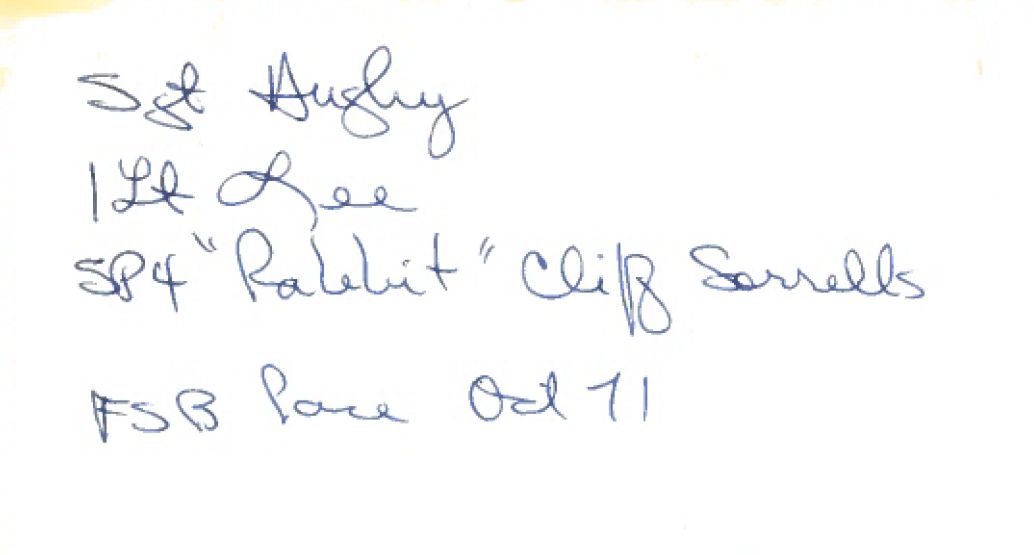 Sgt Hughy
1Lt Lee
SP4 "Rabbit" Cliff Sorrells
FSB Pace Oct 71